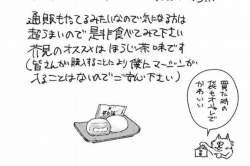 通販もたてるみたいなので気になる方は
超うまいので是非食べてみて下さい
芥見のオススメはほうじ茶味です
(皆さんが購入することより僕にマージンが
入ることはないのでご安心下さい)
買った時の
袋もオシャレで
かわいい